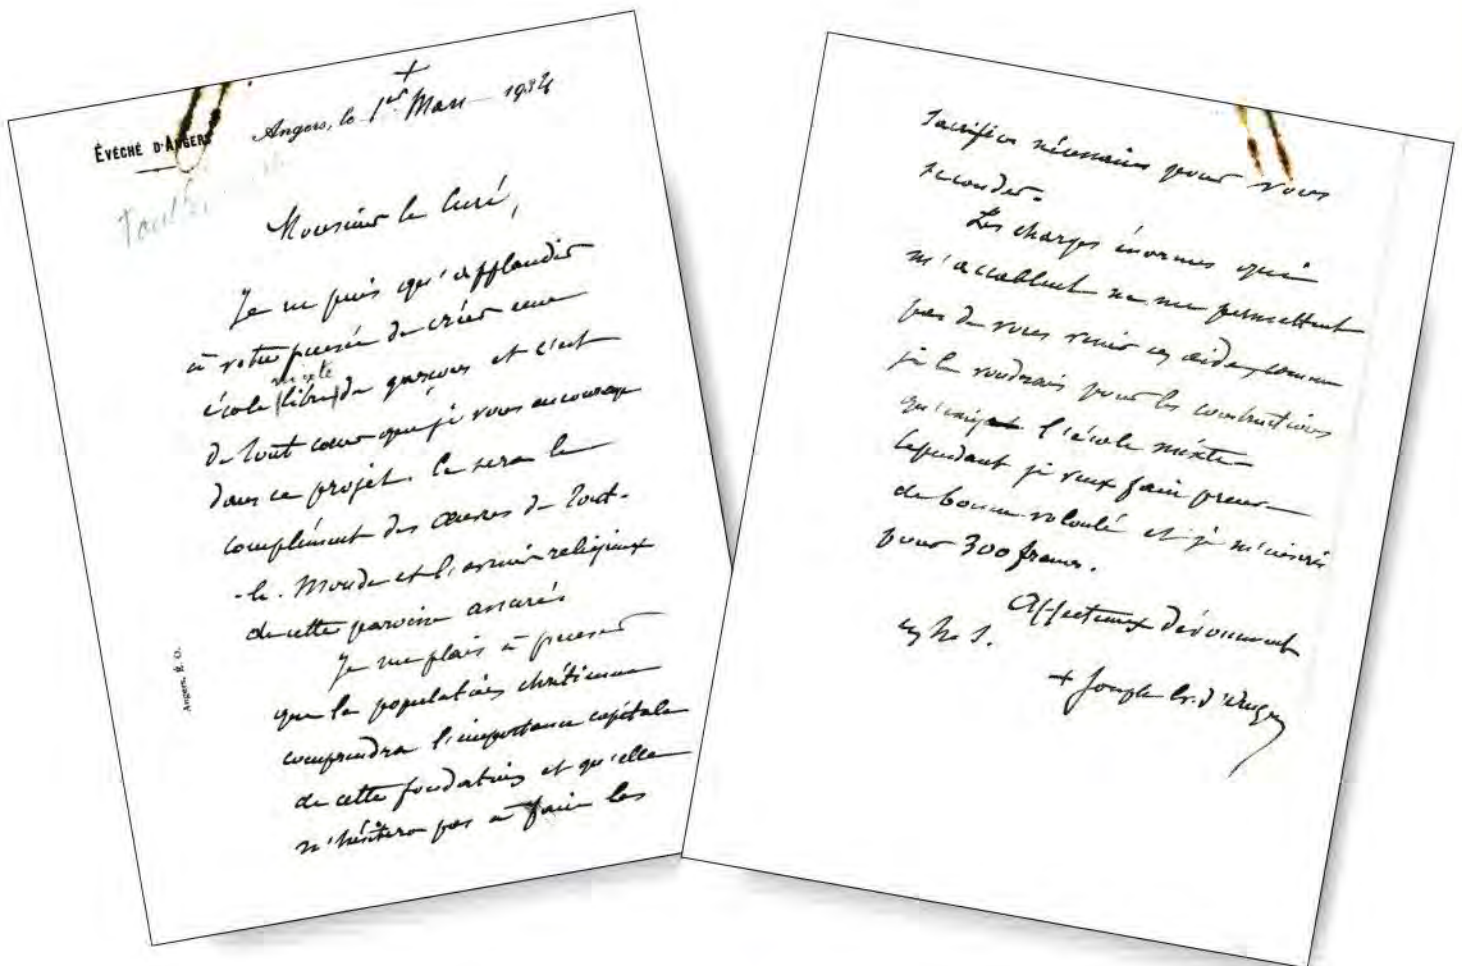 +
ÉVÊCHÉ D'ANGERS
Angers, le 1er Mars 1934
Monsieur le Curé,
Je ne puis qu'applaudir
à votre pensée de créer une
mixte
école (libre) de garçons et c'est
de tout cœur que je vous encourage
dans ce projet. Ce sera le
complément des œuvres de Tout-
-le-Monde et l'avenir religieux
de cette paroisse assurés
Je me plais à penser
que la population chrétienne
comprendra l'importance capitale
de cette fondation et qu'elle
n'hésitera pas à faire les
Angers, É. O.
sacrifices nécessaires pour vous
seconder.
Les charges énormes qui
m'accablent ne me permettent
pas de vous venir en aide, comme
je le voudrais pour les constructions
qu'exige l'école mixte
Cependant je veux faire preuve
de bonne volonté et je m'inscris
pour 300 francs.
Affectueux dévouement
en N. S.
+ Joseph Ev. d'Angers